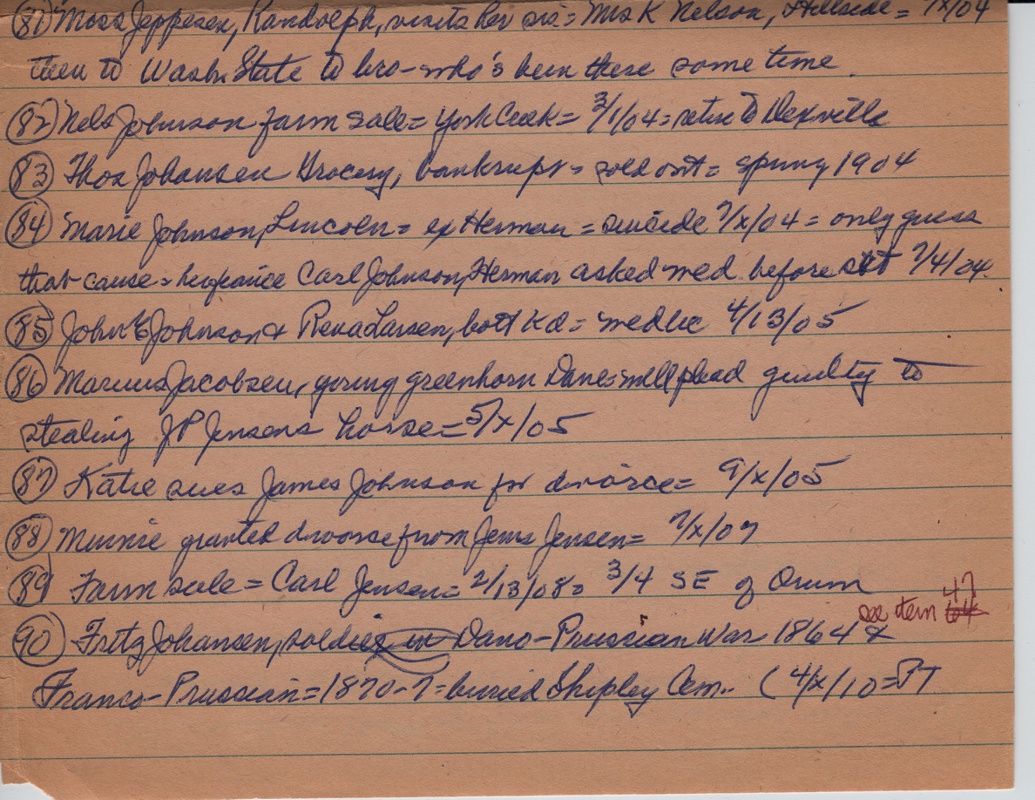 (81) Moss Jeppesen, Randolph, visits her sis = Mrs K Nelson, Hillside = 7/x/04
then to Wash. State to bro - who's been there some time.
(82) Nels Johnson farm sale = York Creek = 3/1/04 = return to
(83) Thos Johansen Grocery, bankrupt = sold out = spring 1904
(84) Marie Johnson, Lincoln = ex Herman = suicide 7/x/04 = only guess
that cause = Carl Johnson, Herman asked med. before 7/4/04.
(85) John E Johnson & Rena Larsen, both Kd = wed lic 4/13/05
(86) Marcus Jacobsen, young greenhorn Dane = will plead guilty to
stealing JP Jensens horse = 5/x/05
(87) Katie sues James Johnson for divorce = 9/x/05
(88) Minnie granted divorce from Jens Jensen = 7/x/07
(89) Farm sale = Carl Jensen = 2/13/08 = 3/4 SE of Orum
see item 47
(90) Fritz Johansen, soldier in Dano-Prussian War 1864 &
Franco-Prussian = 1870-7 = buried Shipley Cem. (4/x/10 = PT